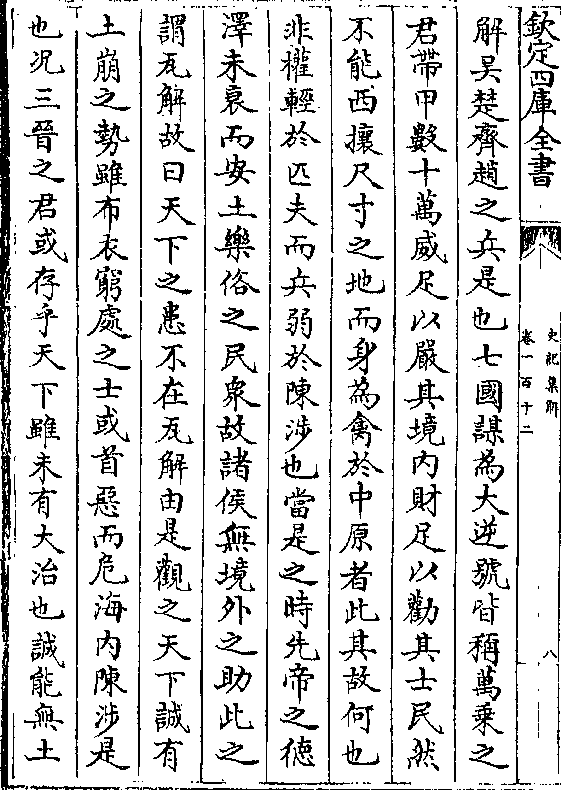 欽定四庫全書
史記集解
卷一百十二
八
解吴楚齊趙之兵是也七國謀為大逆號皆稱萬乘之
君帶甲數十萬威足以嚴其境内財足以勸其士民然
不能西攘尺寸之地而身為禽於中原者此其故何也
非權輕於匹夫而兵弱於陳涉也當是之時先帝之德
澤未衰而安土樂俗之民衆故諸侯無境外之助此之
謂瓦解故曰天下之患不在瓦解由是觀之天下誠有
土崩之勢雖布衣窮處之士或首惡而危海内陳涉是
也况三晉之君或存乎天下雖未有大治也誠能無土